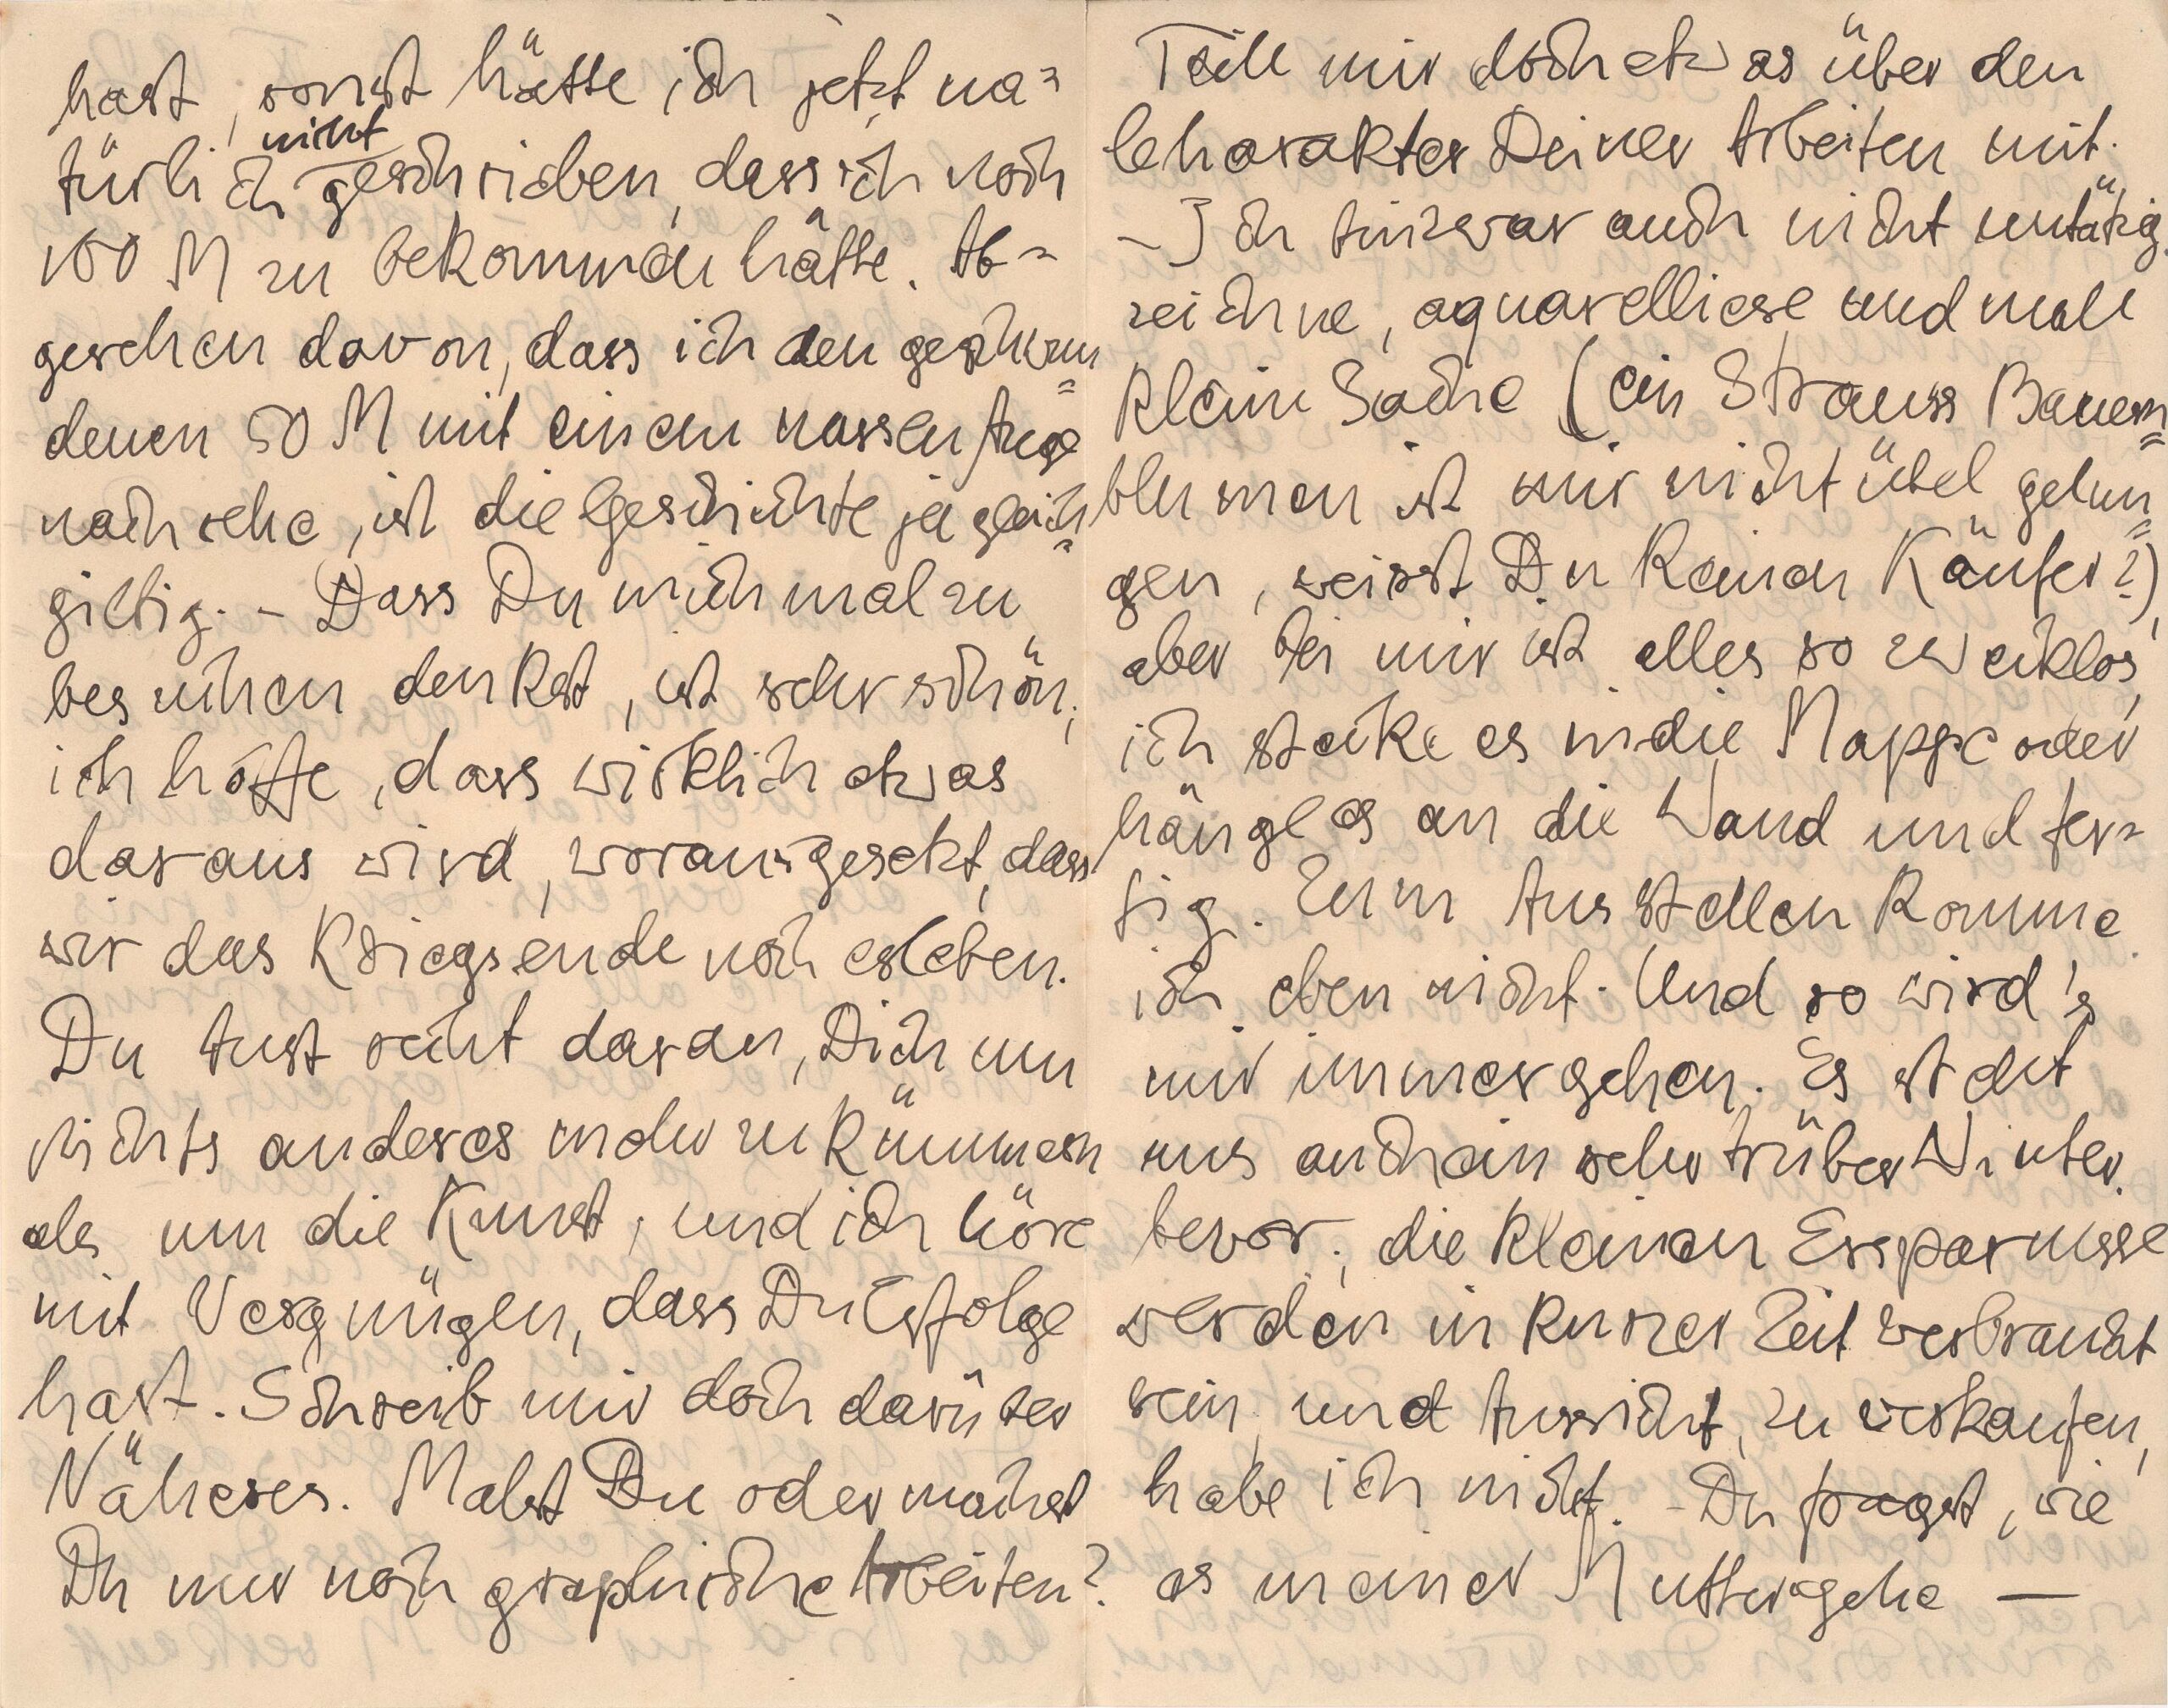 hast, sonst hätte ich jetzt na=
nicht
türlich geschrieben, dass ich noch
100 M zu bekommen hätte. Ab=
gesehen davon, dass ich den geschwun=
denen 50 M mit einem nassen Auge
nachsehe, ist die Geschichte ja gleich=
giltig. – Dass Du mich mal zu
besuchen denkst, ist sehr schön;
ich hoffe, dass wirklich etwas
daraus wird, vorausgesetzt, dass
wir das Kriegsende noch erleben.
Du tust recht daran, Dich um
nichts anderes mehr zu kümmern
als um die Kunst, und ich höre
mit Vergnügen, dass Du Erfolge
hast. Schreib mir doch darüber
Näheres. Malst Du oder machst
Du nur noch graphische Arbeiten?
Teile mir doch etwas über den
Charakter Deiner Arbeiten mit.
– Ich bin zwar auch nicht untätig,
zeichne, aquarelliere und male
kleine Sache (ein Strauss Bauern=
blumen ist mir nicht übel gelun=
gen, weisst Du keinen Käufer?),
aber bei mir ist alles so zwecklos,
ich stecke es in die Mappe oder
hänge es an die Wand und fer=
tig. Zum Ausstellen komme
ich eben nicht. Und so wird's
mir immer gehen. Es steht
uns auch ein sehr trüber Winter
bevor; die kleinen Ersparnisse
werden in kurzer Zeit verbraucht
sein, und Aussicht, zu verkaufen,
habe ich nicht. – Du fragst, wie
es meiner Mutter gehe —